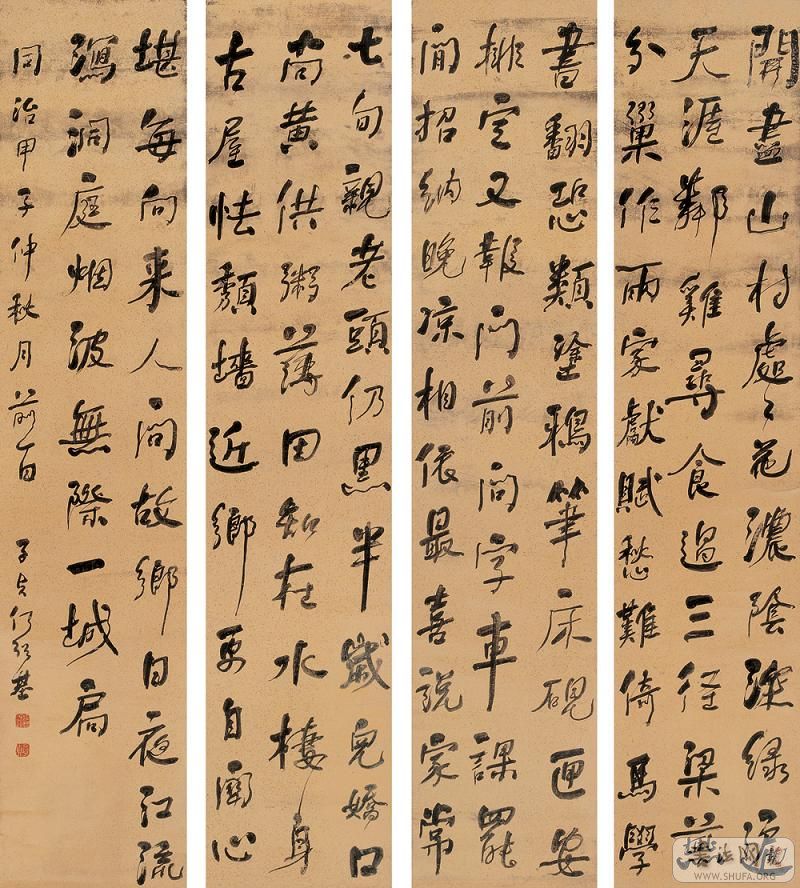 開盡山村處々花濃陰深綠近
天涯鄰雞尋食過三徑梁燕
分巢作兩家獻賦愁難倚馬學
書翻恐類塗鴉筆床硯匣安
排定又報門前問字車課罷
閒招納晚涼相依最喜說家常
七旬親老頭仍黑半歲兒嬌口
尚黄供粥薄田知在水棲身
古屋怯頹墻近鄉更自關心
堪每向来人問故鄉日夜江流
瀉洞庭烟波無際一城扃
同治甲子仲秋月前一日 子貞何紹基
WWW.SHUFA.ORG